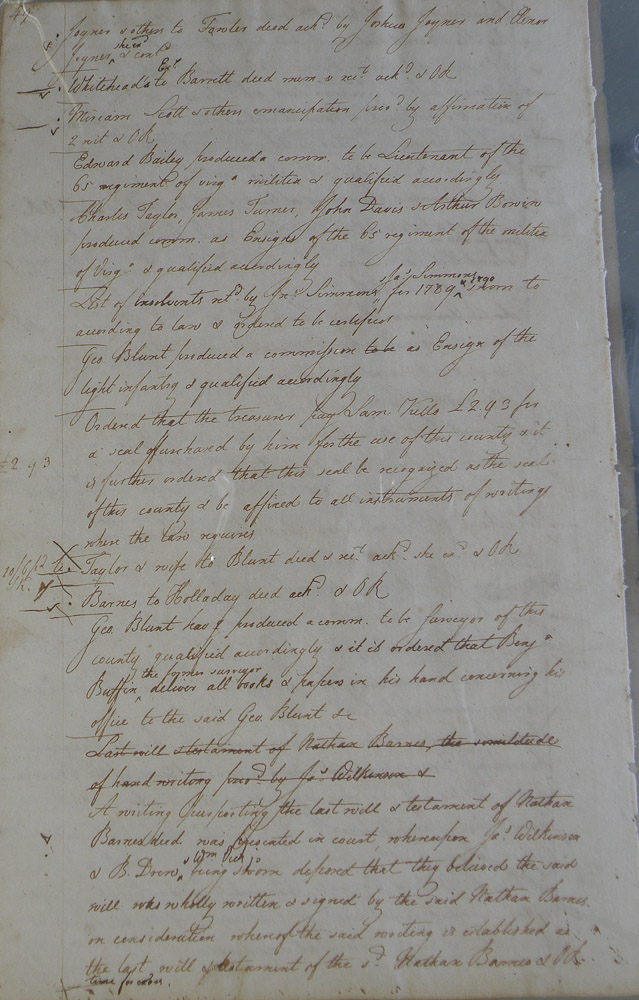 Joyner & others to Fowler deed ackd. by Joshua Joyner and Elenor
Joyner, she ex & cont
Whitehead's Exr. to Barrett deed mem. & rect. ackd. & OR
Miriam Scott & others emancipation provd. by affirmation of
2 wit & OR
Edward Bailey produced a comm. to be Lieutenant of the
65 regiment of virga. militia & qualified accordingly
Charles Taylor, James Turner, John Davis & Arthur Bowin
produced comm. as Ensigns of the 65 regiment of the militia
of Virga. & qualified accordingly
List of Insolvents retd. by Jno. Simmons & Jas. Simmons for 1789 & 1790 sworn to
according to law & ordered to be certified
Geo. Blunt produced a commission to be as Ensign of the
light infantry & qualified accordingly
Ordered that the treasurer pay Sam. Kello £2.9.3 for
a seal purchased by him for the use of this county & it
£2 9 3
is further ordered that this seal be recognized as the seal
of this county & be affixed to all instruments of writing
where the law requires
Taylor & wife to Blunt deed & rect. ackd. she ex. & OR
Barnes to Holladay deed ackd. & OR
Geo. Blunt havg. produced a comm. to be Surveyor of this
county qualified accordingly & it is ordered that Benja.
Ruffin the former surveyor deliver all books & papers in his hand concerning his
office to the said Geo. Blunt &c
Last will & testament of Nathan Barnes, the similitude
of hand writing provd. by Jas. Wilkinson &
A writing purporting the last will & testament of Nathan
Barnes decd was presented in court, whereupon Jas. Wilkinson
& B. Drew, & Wm being sworn deposed that they believed the said
will was wholly written & signed by the said Nathan Barnes
on consideration whereof the said writing is established as
the last will & testament of the sd. Nathan Barnes & OR
time for exors.